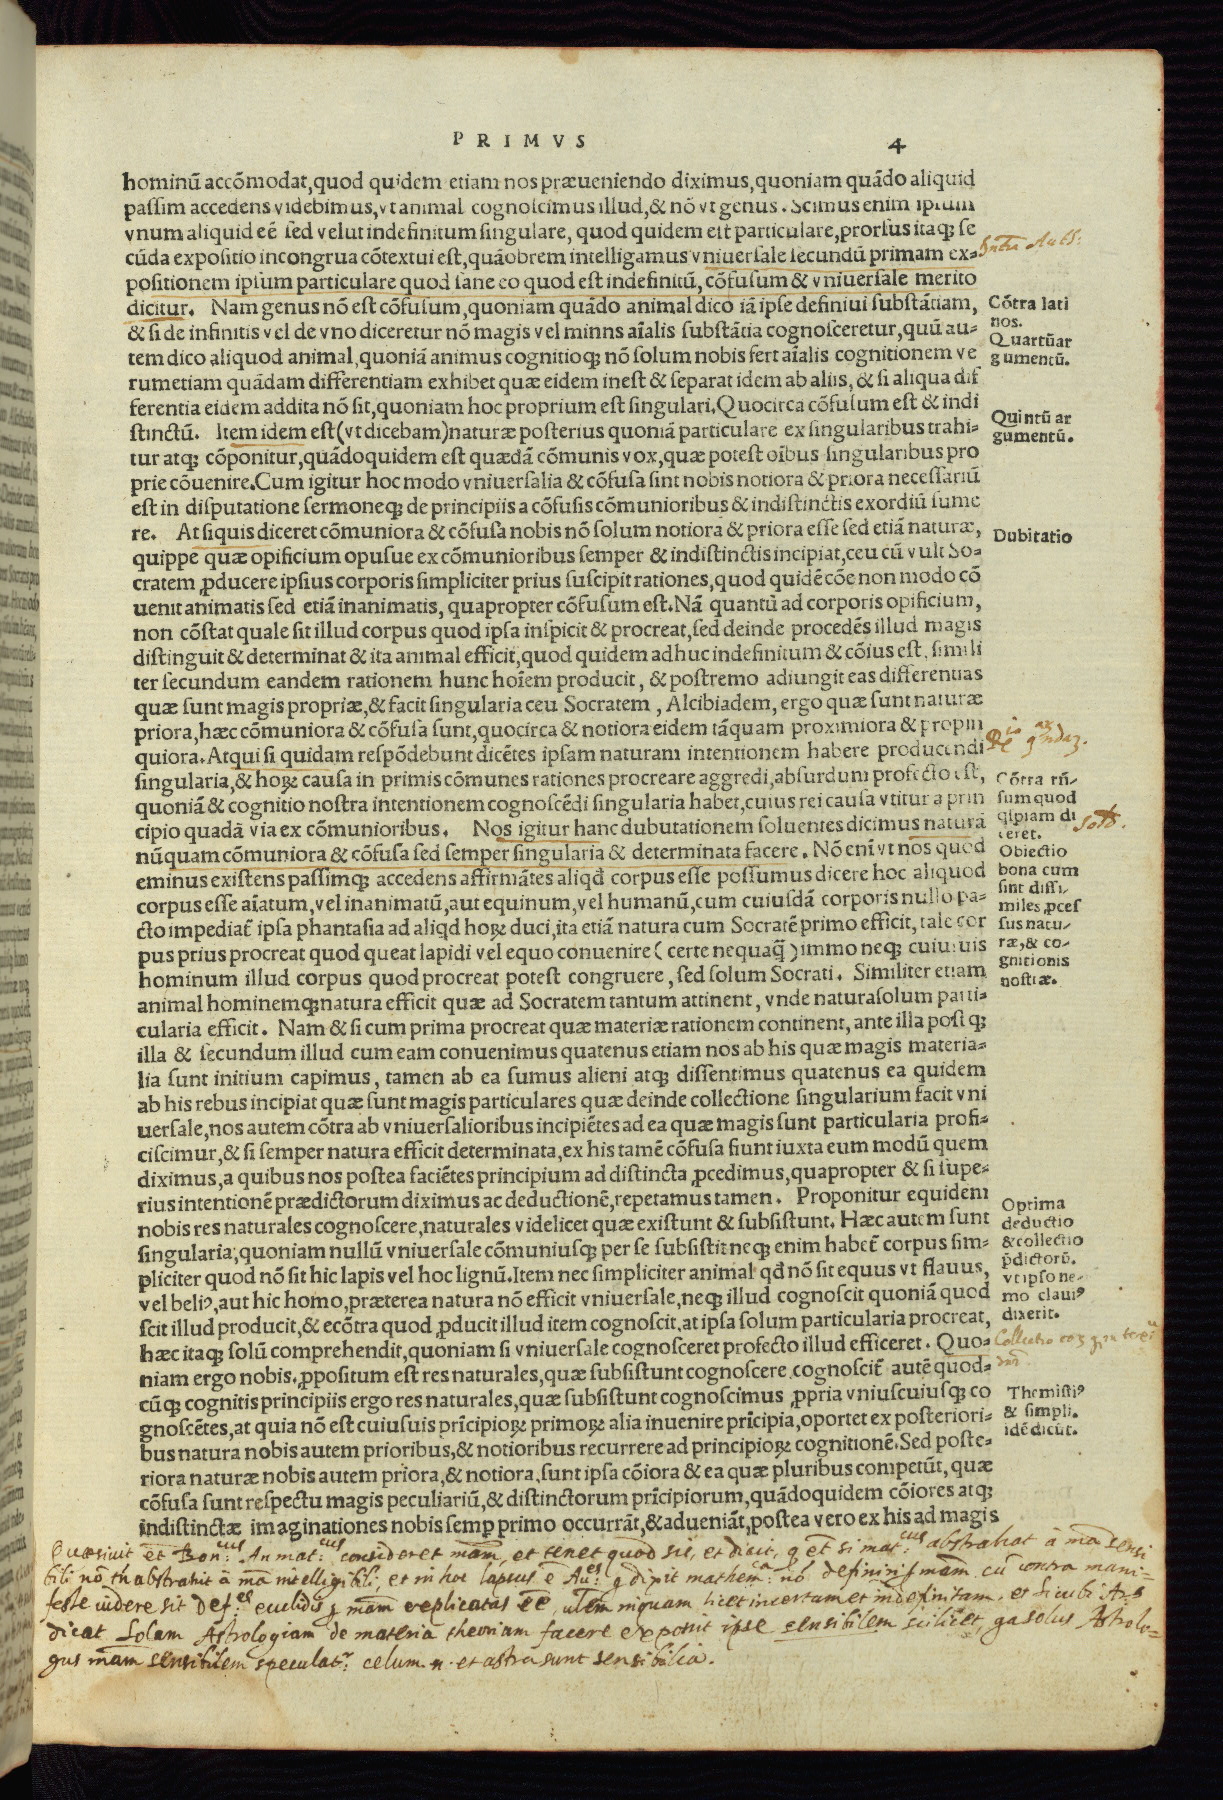 PRIMVS 4
hominũ accõmodat,quod quidem etiam nos præueniendo diximus,quoniam quãdo aliquid
passim accedens videbimus,vt animal cognoscimus illud,& nõ vt genus. Scimus enim ipsum
vnum aliquid eẽ sed velut indefinitum singulare, quod quidem est particulare,prorsus itaqꝫ se
cũda expositio incongrua cõtextui est,quãobrem intelligamus vniuersale secundũ primam ex-
positionem ipsum particulare quod sane eo quod est indefinitũ, cõfusum & vniuersale merito
dicitur. Nam genus nõ est cõfusum,quoniam quãdo animal dico iã ipse definiui substãtiam,
& si de infinitis vel de vno diceretur nõ magis vel minns aĩalis substãtia cognosceretur,quũ au-
tem dico aliquod animal,quoniã animus cognitioqꝫ nõ solum nobis fert aĩalis cognitionem ve
rumetiam quãdam differentiam exhibet quæ eidem inest & separat idem ab aliis, & si aliqua dif
ferentia eidem addita nõ sit,quoniam hoc proprium est singulari.Quocirca cõfusum est & indi
stinctũ. Item idem est(vt dicebam)naturæ posterius quoniã particulare ex singularibus trahi-
tur atqꝫ cõponitur,quãdoquidem est quædã cõmunis vox,quæ potest oĩbus singularibus pro
prie cõuenire.Cum igitur hoc modo vniuersalia & cõfusa sint nobis notiora & priora necessariũ
est in disputatione sermoneqꝫ de principiis a cõfusis cõmunioribus & indistinctis exordiũ sume
re. At siquis diceret cõmuniora & cõfusa nobis nõ solum notiora & priora esse sed etiã naturæ,
quippe quæ opificium opusue ex cõmunioribus semper & indistinctis incipiat,ceu cũ vult So-
cratem ꝓducere ipsius corporis simpliciter prius suscipit rationes,quod quidẽ cõe non modo cõ
uenit animatis sed etiã inanimatis, quapropter cõfusum est.Nã quantũ ad corporis opificium,
non cõstat quale sit illud corpus quod ipsa inspicit & procreat,sed deinde procedẽs illud magis
distinguit & determinat & ita animal efficit,quod quidem adhuc indefinitum & cõius est, simili
ter secundum eandem rationem hunc hoĩem producit, & postremo adiungit eas differentias
quæ sunt magis propriæ,& facit singularia ceu Socratem , Alcibiadem, ergo quæ sunt naturæ
priora,hæc cõmuniora & cõfusa sunt,quocirca & notiora eidem tãquam proximiora & propin
quiora.Atqui si quidam respõdebunt dicẽtes ipsam naturam intentionem habere producendi
singularia,& hoꝝ causa in primis cõmunes rationes procreare aggredi,absurdum profecto est,
quoniã & cognitio nostra intentionem cognoscẽdi singularia habet,cuius rei causa vtitur a prin
cipio quadã via ex cõmunioribus. Nos igitur hanc dubutationem soluentes dicimus naturã
nũquam cõmuniora & cõfusa sed semper singularia & determinata facere. Nõ enĩ vt nos quod
eminus existens passimqꝫ accedens affirmãtes aliqđ corpus esse possumus dicere hoc aliquod
corpus esse aĩatum,vel inanimatũ,aut equinum,vel humanũ,cum cuiusdã corporis nullo pa-
cto impediat̃ ipsa phantasia ad aliqđ hoꝝ duci,ita etiã natura cum Socratẽ primo efficit, tale cor
pus prius procreat quod queat lapidi vel equo conuenire ( certe nequaq̃ ) immo neqꝫ cuiusuis
hominum illud corpus quod procreat potest congruere , sed solum Socrati. Similiter etiam
animal hominemqꝫ natura efficit quæ ad Socratem tantum attinent, vnde natura solum parti-
cularia efficit. Nam & si cum prima procreat quæ materiæ rationem continent, ante illa postqꝫ
illa & secundum illud cum eam conuenimus quatenus etiam nos ab his quæ magis materia-
lia sunt initium capimus, tamen ab ea sumus alieni atqꝫ dissentimus quatenus ea quidem
ab his rebus incipiat quæ sunt magis particulares quæ deinde collectione singularium facit vni
uersale,nos autem cõtra ab vniuersalioribus incipiẽtes ad ea quæ magis sunt particularia profi-
ciscimur,& si semper natura efficit determinata,ex his tamẽ cõfusa fiunt iuxta eum modũ quem
diximus,a quibus nos postea faciẽtes principium ad distincta ꝓcedimus,quapropter & si supe-
rius intentionẽ prædictorum diximus ac deductionẽ,repetamus tamen. Proponitur equidem
nobis res naturales cognoscere,naturales videlicet quæ existunt & subsistunt. Hæc autem sunt
singularia,quoniam nullũ vniuersale cõmuniusqꝫ per se subsistit:neqꝫ enim habet̃ corpus sim-
pliciter quod nõ sit hic lapis vel hoc lignũ.Item nec simpliciter animal qđ nõ sit equus vt flauus,
vel beliꝰ,aut hic homo,præterea natura nõ efficit vniuersale,neqꝫ illud cognoscit quoniã quod
scit illud producit,& ecõtra quod ꝓducit illud item cognoscit,at ipsa solum particularia procreat,
hæc itaqꝫ solũ comprehendit,quoniam si vniuersale cognosceret profecto illud efficeret. Quo-
niam ergo nobis ꝓpositum est res naturales,quæ subsistunt cognoscere cognoscit̃ autẽ quod-
cũqꝫ cognitis principiis ergo res naturales,quæ subsistunt cognoscimus ꝓpria vniuscuiusqꝫ co
gnoscẽtes,at quia nõ est cuiusuis prĩcipioꝝ primoꝝ alia inuenire prĩcipia,oportet ex posteriori-
bus natura nobis autem prioribus,& notioribus recurrere ad principioꝝ cognitionẽ.Sed poste-
riora naturæ nobis autem priora,& notiora,sunt ipsa cõiora & ea quæ pluribus competũt, quæ
cõfusa sunt respectu magis peculiariũ,& distinctorum prĩcipiorum,quãdoquidem cõiores atqꝫ
indistinctæ imaginationes nobis semꝑ primo occurrãt,& adueniãt,postea vero ex his ad magis
Cõtra lati
nos.
Quartũar
gumentũ.
Quintũ ar
gumentũ.
Dubitatio
Cõtra rũ-
sum quod
qĩpiam di
ceret.
Obiectio
bona cum
sint dissi-
miles ꝓces
sus natu-
ræ,& co-
gnitionis
nostræ.
Optima
deductio
& collectio
p̃dictorũ.
vt ipso ne-
mo clauiꝰ
dixerit.
Themistiꝰ
& simpli.
idẽ dicũt.
Quæsiuit et̃ Bon: An mat:cus consideret mãm, et tenet quod sic, et dicit, q et̃ si mat:cus abstrahat à mã sensi
bili nõ tñ abstrahit à mã intelligibili, et in hoc lapsus ẽ
feste uidere sit Def:es euclidis
dicat Solam Astrologiam de materiã theoriam facere exponit ipse sensibilem scilicet, qa solus Astrolo-
gus mãm sensibilem speculat:r celum .n. et astra sunt sensibilia.